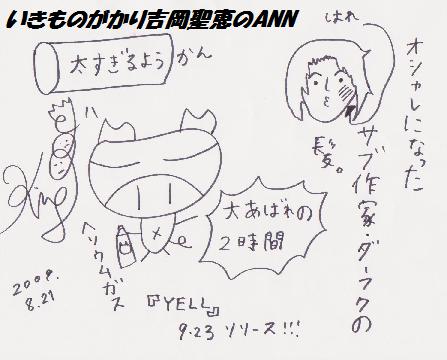 いきものがかり吉岡聖恵のANN
はれ
オシャレになった
サブ作家・ダークの
髪。
太すぎるようかん
大あばれの
2時間
ヘリウムガス
2009.
8.21
『YELL』
9.23 リリース!!!